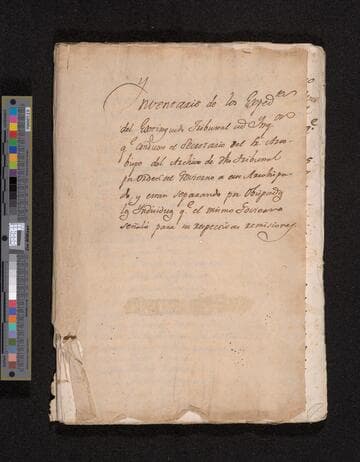 Inventario de los Exped.tes
del Extinguido Tribunal de Inq.on
q.e condujo el Secretario del
bujo del Archivo de dho Tribunal
pr orden del Govierno a este Arzobispa-
do, y estan separados pr Obispados
los Individuos q.e el mismo Govierno
señala para su respectivas remisiones.